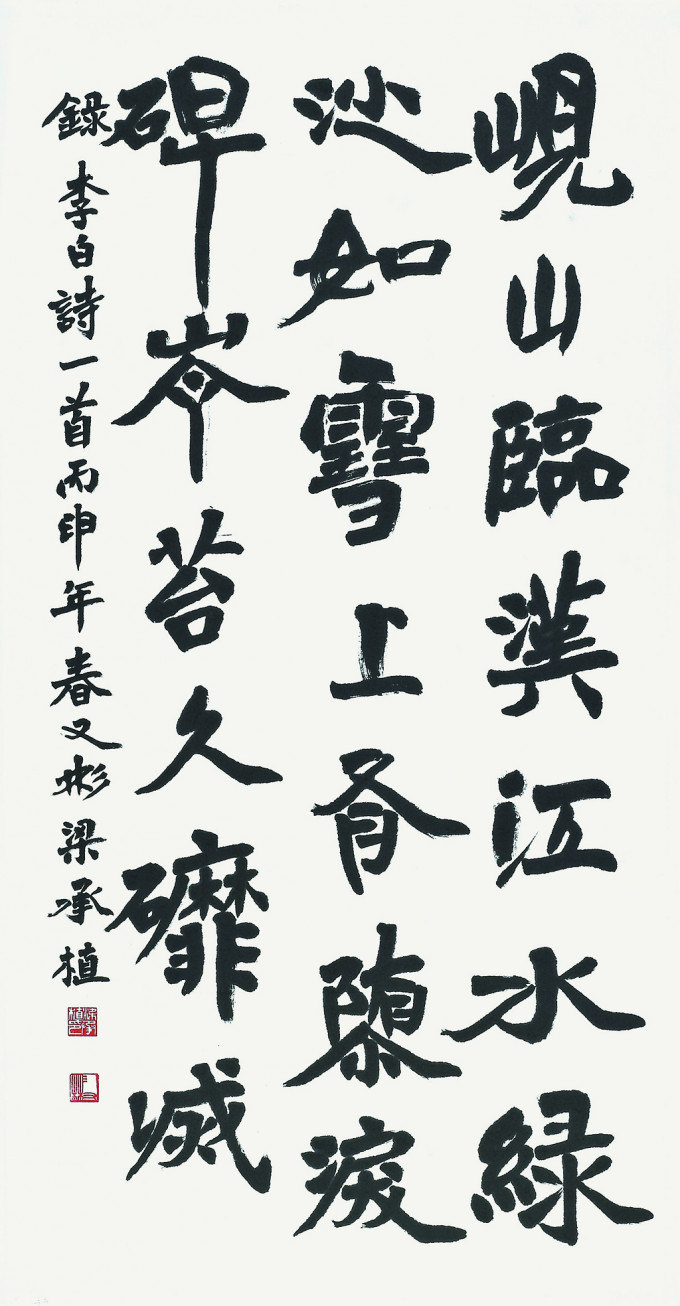 峴山臨漢江水緑
沙如雪上有墮淚
碑青苔久䃺滅
錄李白詩一首丙申年春又彬梁承植